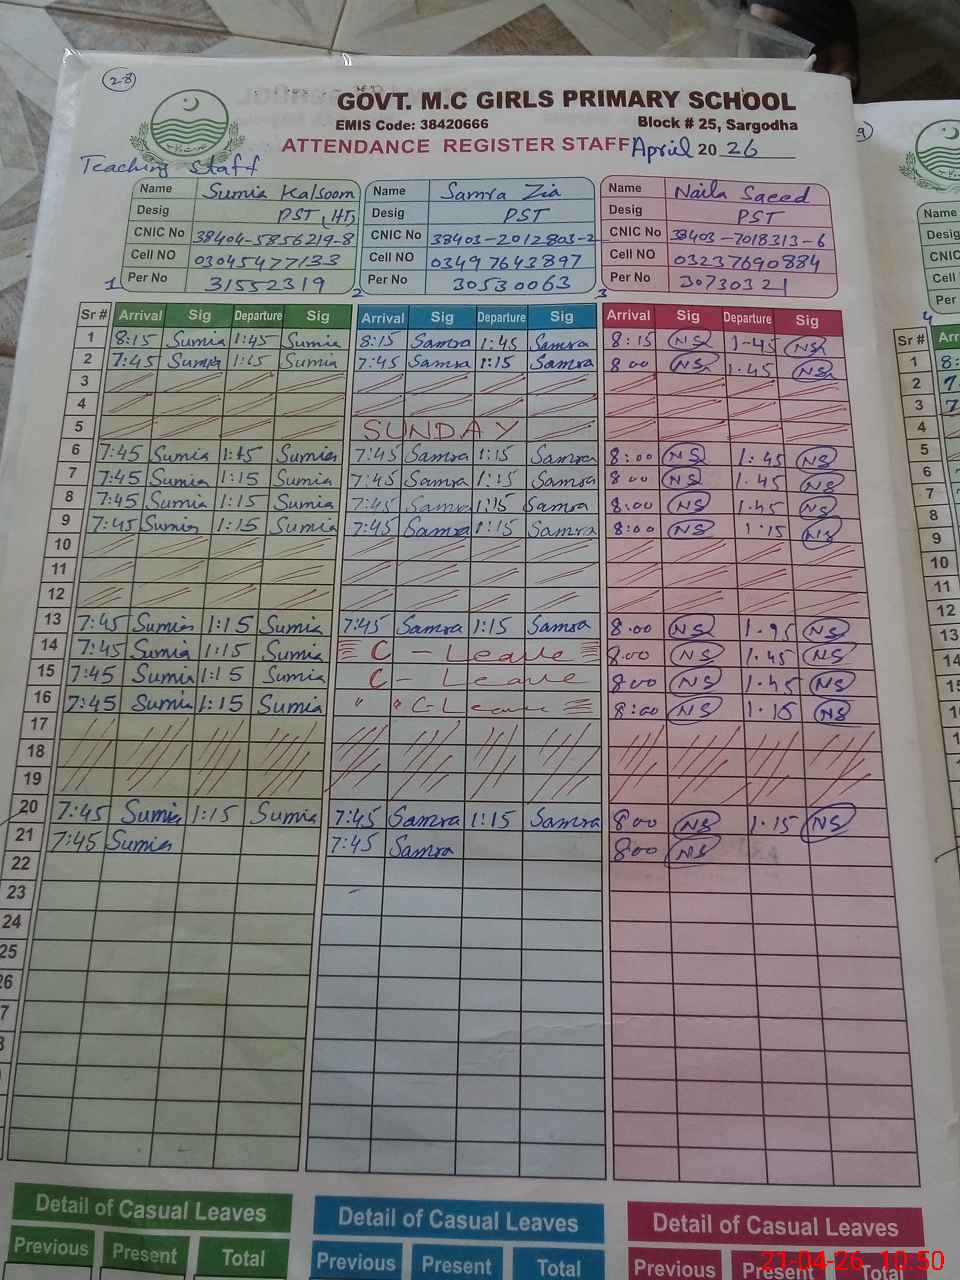 28
GOVT. M.C GIRLS PRIMARY SCHOOL
EMIS Code: 38420666 Block # 25, Sargodha
ATTENDANCE REGISTER STAFF April 2026
Teaching Staff
Name Sumia Kalsoom Name Samra Zia Name Naila Saeed
Desig PST (HT) Desig PST Desig PST
CNIC No 38404-5856219-8 CNIC No 38403-2012803-2 CNIC No 38403-7018313-6
Cell NO 03045477133 Cell NO 03497643897 Cell NO 03237690884
1 Per No 31552319 2 Per No 30530063 3 Per No 30730321
Sr # Arrival Sig Departure Sig Arrival Sig Departure Sig Arrival Sig Departure Sig
1 8:15 Sumia 1:45 Sumia 8:15 Samra 1:45 Samra 8:15 NS 1-45 NS
2 7:45 Sumia 1:15 Sumia 7:45 Samra 1:15 Samra 8 00 NS 1.45 NS
3
4
5 SUNDAY
6 7:45 Sumia 1:15 Sumia 7:45 Samra 1:15 Samra 8:00 NS 1:45 NS
7 7:45 Sumia 1:15 Sumia 7:45 Samra 1:15 Samra 8 00 NS 1.45 NS
8 7:45 Sumia 1:15 Sumia 7:45 Samra 1:15 Samra 8:00 NS 1.45 NS
9 7:45 Sumia 1:15 Sumia 7:45 Samra 1:15 Samra 8:00 NS 1:15 NS
10
11
12
13 7:45 Sumia 1:15 Sumia 7:45 Samra 1:15 Samra 8.00 NS NS
14 7:45 Sumia 1:15 Sumia C - Leave 8.00 NS 1.45 NS
15 7:45 Sumia 1:15 Sumia C - Leave 800 NS 1.45 NS
16 7:45 Sumia 1:15 Sumia " " C-Leave 8:00 NS 1.15 NS
17
18
19
20 7:45 Sumia 1:15 Sumia 7:45 Samra 1:15 Samra 800 NS 1.15 NS
21 7:45 Sumia 7:45 Samra 800 NS
22
23
24
25
26
7
8
Detail of Casual Leaves Detail of Casual Leaves Detail of Casual Leaves
Previous Present Total Previous Present Total Previous Present Total
Name
Desig
CNIC
Cell
Per
4
Sr # Arr
1 8:
2 7
3 7
4
5
6
7
8
9
10
11
12
13
14
15
16
21-04-26 10:50